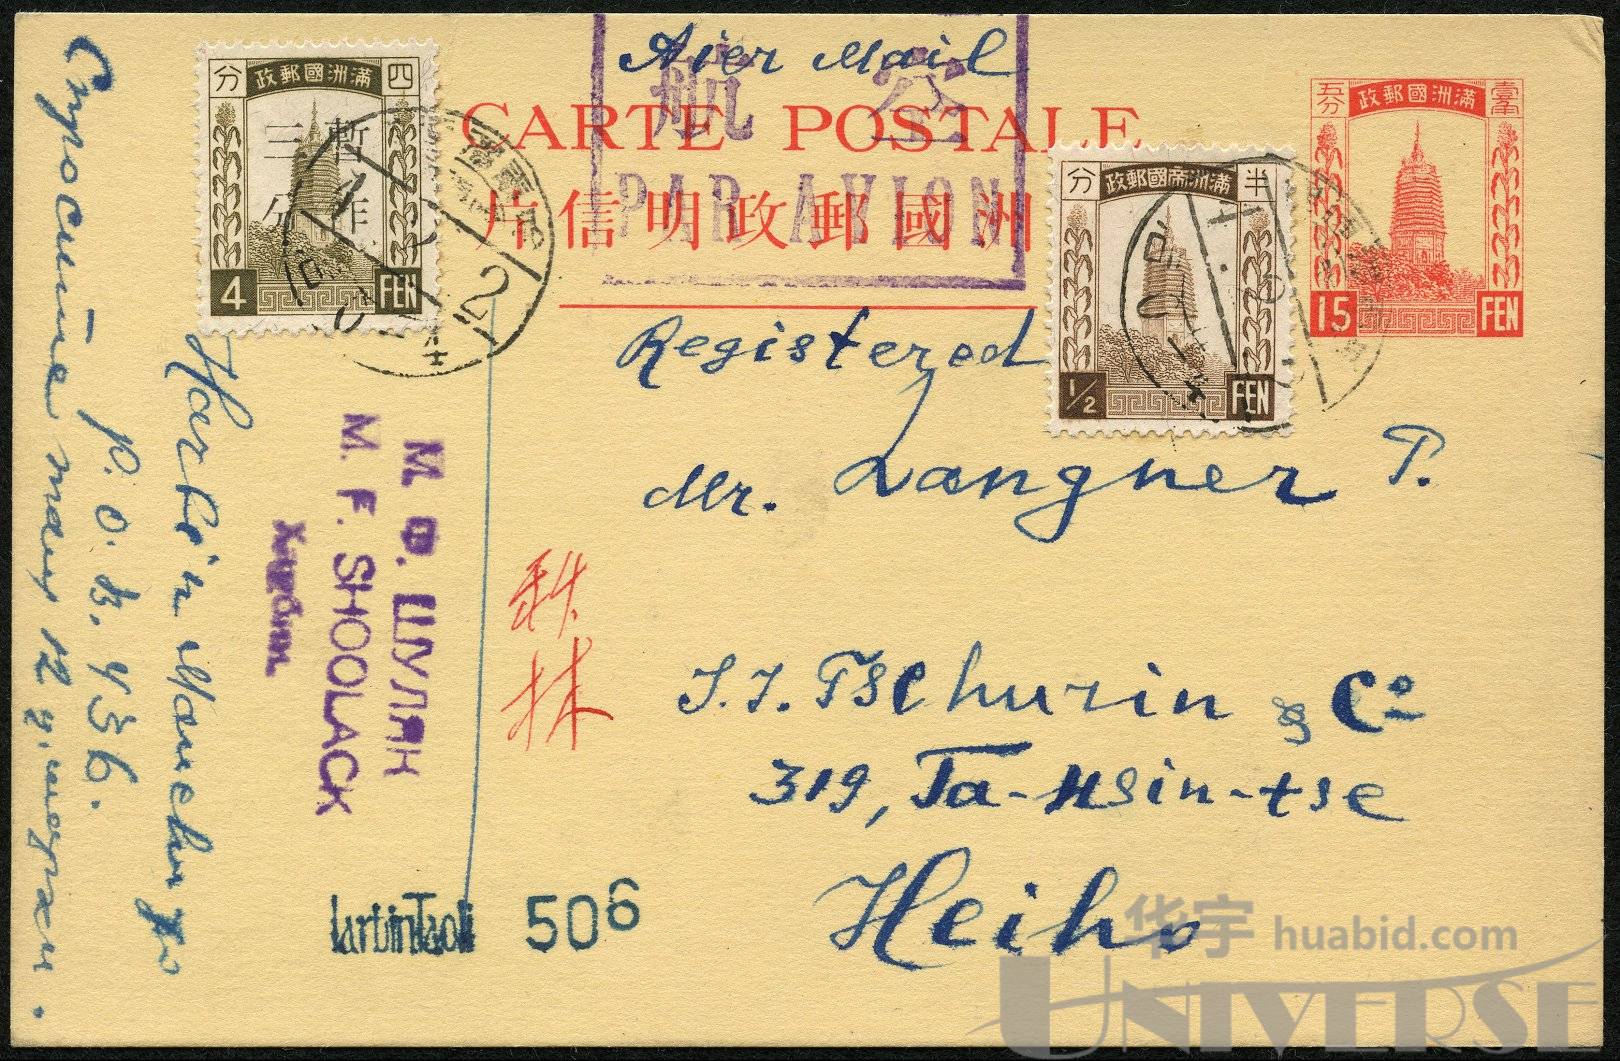 Aier Mail
航空
PAR AVION
CARTE POSTALE
片信明政郵國洲
政郵國洲滿
分 四
暫作
三分
4 FEN
政郵國帝洲滿
分 半
1/2 FEN
政郵國洲滿
五分 壹角
15 FEN
Registered
Mr. Langner P.
I. I. Tschurin & Co
319, Ta-Hsin-tse
Heiho
秋林
М. Ф. ШУЛЯК
M. F. SHOOLACK
Харбин
Harbin Manchu
P. O. B. 436.
Спросите
506
华宇 huabid.com
UNIVERSE